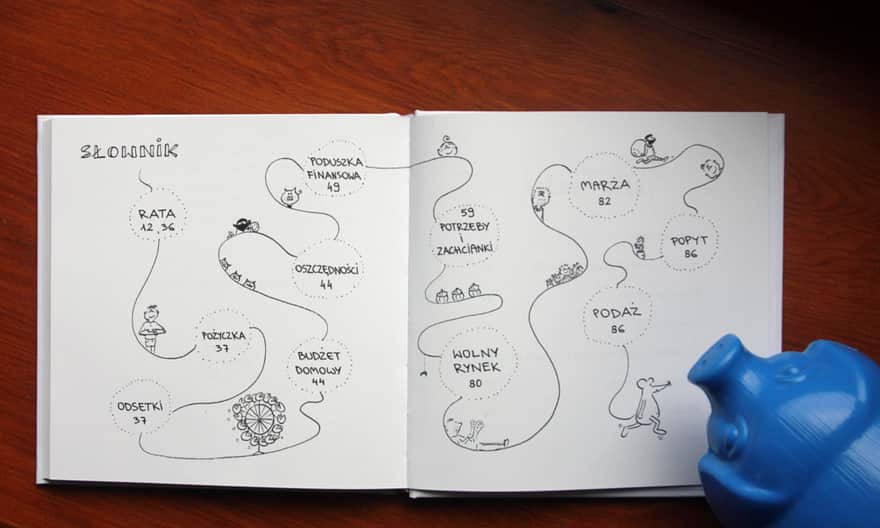 SŁOWNIK
RATA
12, 36
POŻYCZKA
37
ODSETKI
37
BUDŻET
DOMOWY
44
OSZCZĘDNOŚCI
44
PODUSZKA
FINANSOWA
49
59
POTRZEBY
I
ZACHCIANKI
WOLNY
RYNEK
80
MARŻA
82
POPYT
86
PODAŻ
86